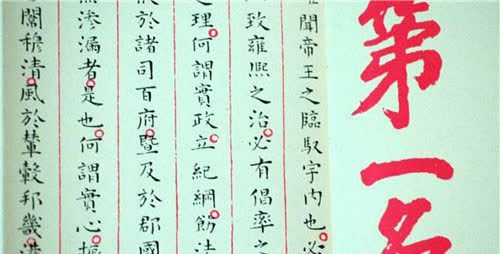 第一名
聞帝王之臨馭宇內也必
致雍熙之治必有倡率之
之理何謂實政立紀綱飭法
於諸司百府暨及於郡國
滲漏者是也何謂實心振
闈穆清風於輦轂邦畿